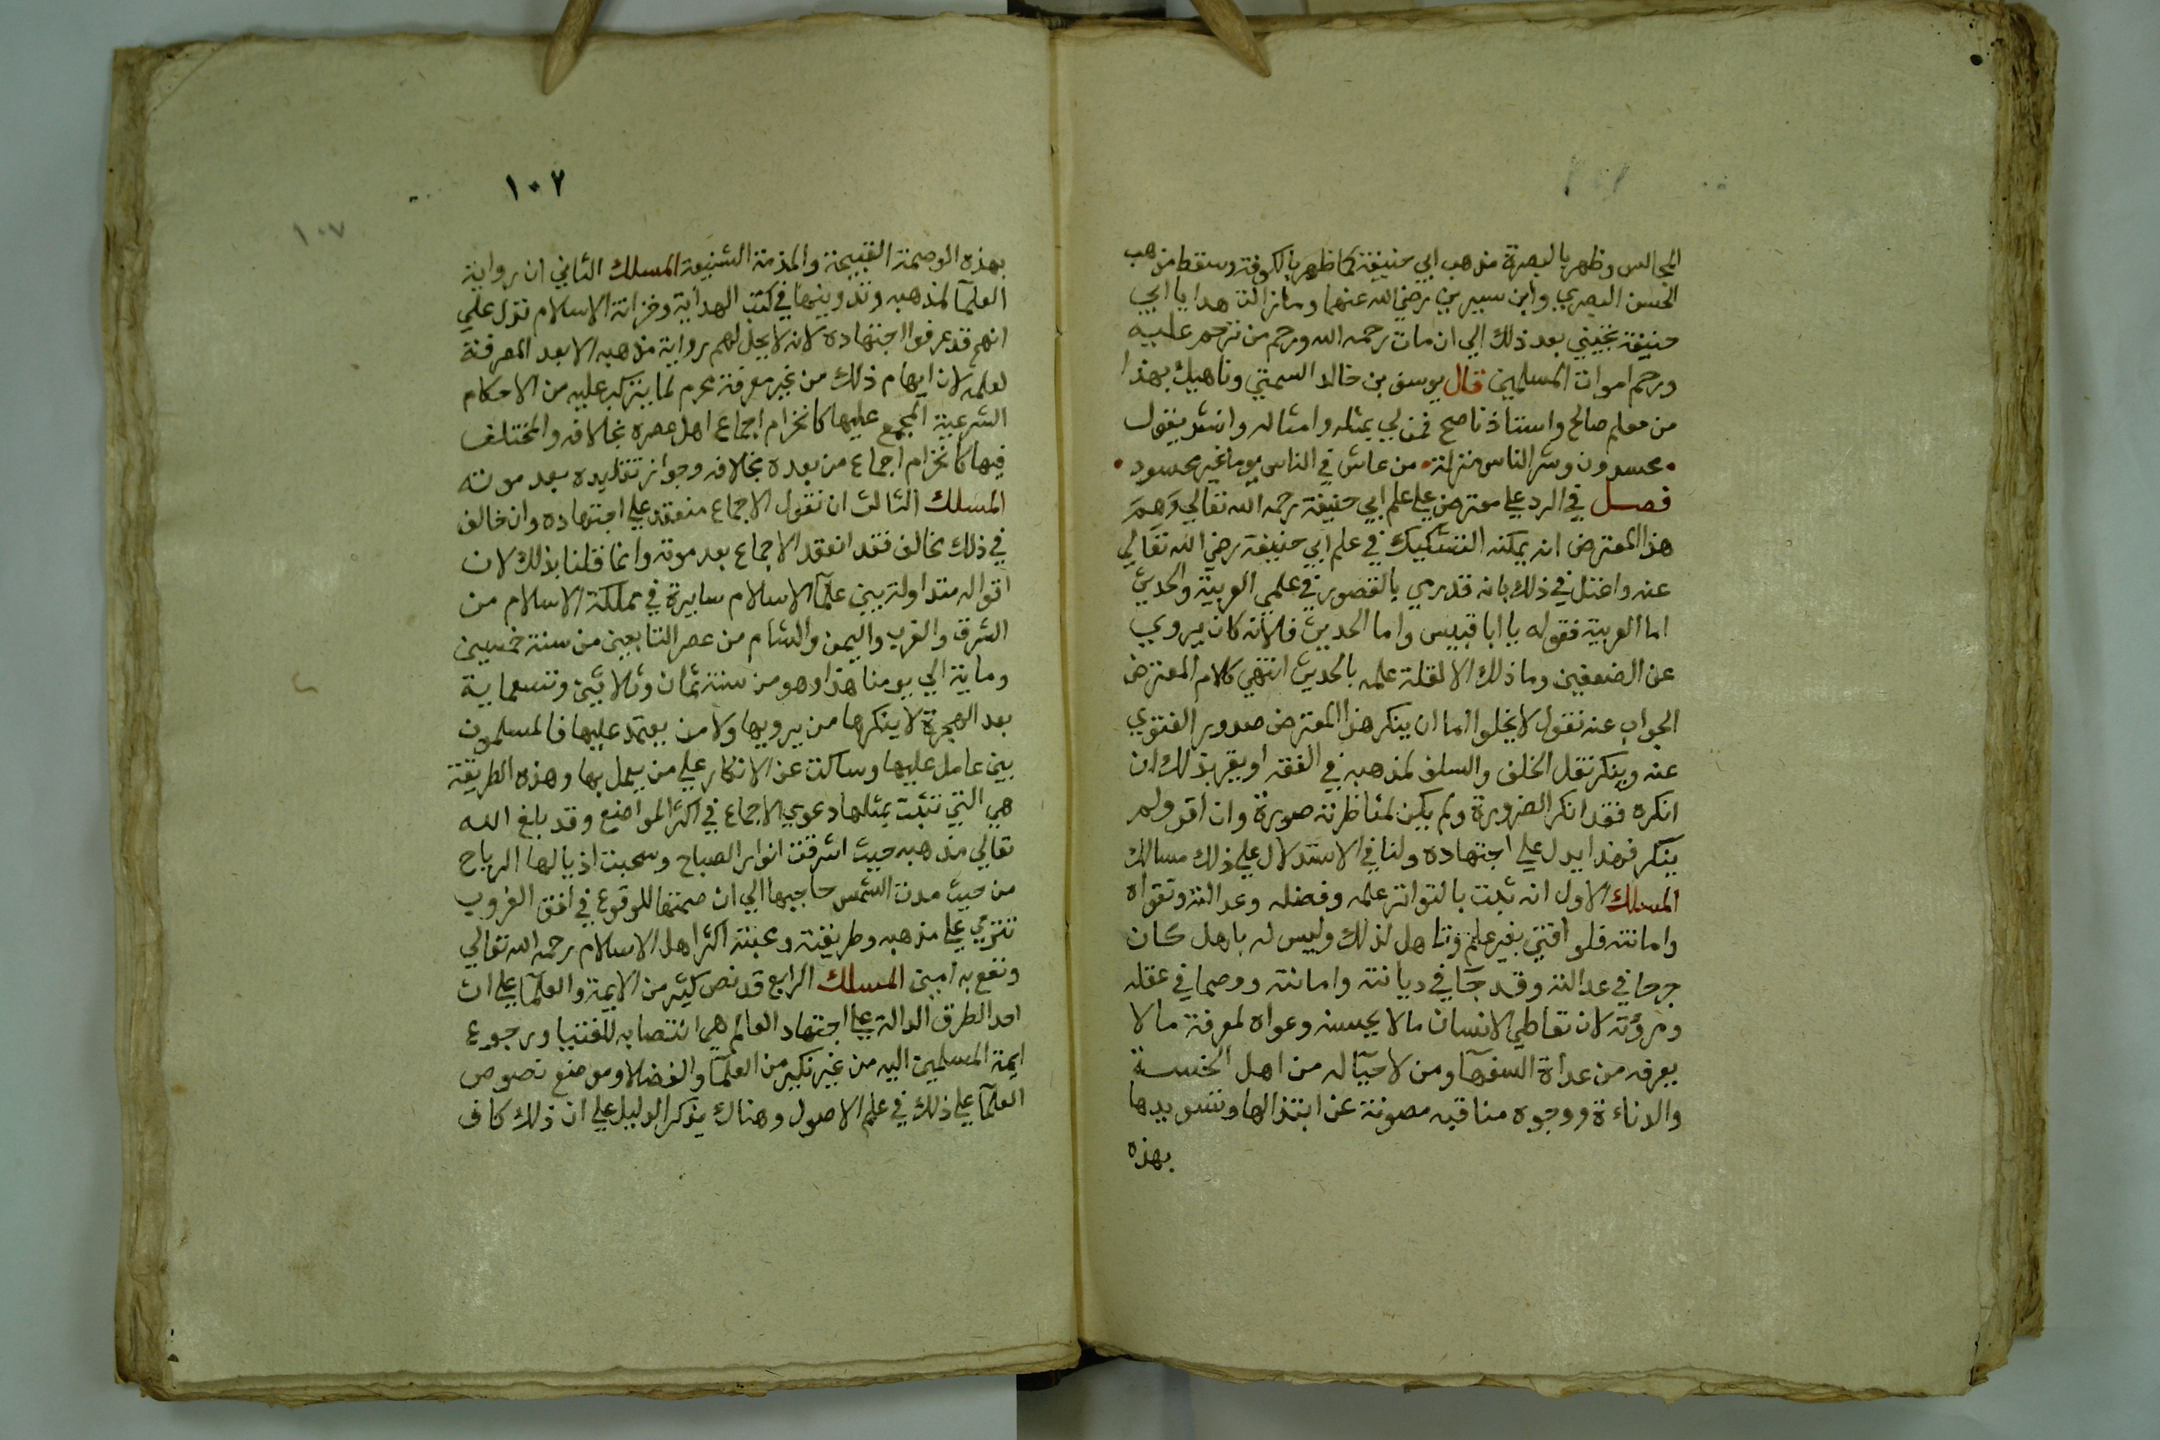 المجالس وظهر بالبصرة مذهب ابي حنيفة كما ظهر بالكوفة وسقط مذهب
الحسن البصري وابن سيرين رضي الله عنهما وما زالت هدايا ابي
حنيفة تجيني بعد ذلك الي ان مات رحمه الله ورحم من ترحم عليه
ورحم اموات المسلمين قال يوسف بن خالد السمتي وناهيك بهذا
من معلم صالح واستاذ ناصح فمن لي بمثله وامثاله وانشد يقول
محسدون وشر الناس منزلة من عاش في الناس يوما غير محسود
فصل في الرد علي معترض علي علم ابي حنيفة رحمه الله تعالي وهم
هذا المعترض انه يمكنه التشكيك في علم ابي حنيفة رضي الله تعالي
عنه واعتل في ذلك بانه قد رمي بالقصور في علمي العربية والحديث
اما العربية فقوله بابا قبيس واما الحديث فلانه كان يروي
عن الضعفين وما ذلك الا لقلة علمه بالحديث انتهي كلام المعترض
الجواب عنه نقول لا يخلوا اما ان ينكر هذا المعترض صدور الفتوي
عنه وينكر نقل الخلف والسلف لمذهبه في الفقه او يقر بذلك ان
انكره فقد انكر الضرورة ولم يكن لمناظرته صورة وان اقر ولم
ينكر فهذا يدل علي اجتهاده ولنا في الاستدلال علي ذلك مسالك
المسلك الاول انه ثبت بالتواتر علمه وفضله وعدالته وتقواه
وامانته فلو افتي بغير علم وتاهل لذلك وليس له باهل كان
جرحا في عدالته وقدحا في ديانته وامانته ووصما في عقله
ومروته لان تعاطي الانسان ما لا يحسنه ودعواه لمعرفة ما لا
يعرفه من عداة السفهآ ومن لا حيآ له من اهل الخسة
والدناءة ووجوه مناقبه مصونة عن ابتذالها وتسويدها
بهذه
١٠٢
١٠٧
بهذه الوصمة القبيحة والمذمة الشنيعة المسلك الثاني ان رواية
العلمآ لمذهبه وتدوينها في كتب الهداية وخزانة الاسلام تدل علي
انهم قد عرفوا اجتهاده لانه لا يحل لهم رواية مذهبه الا بعد المعرفة
لعلمه لان ايهام ذلك من غير معرفة محرم لما يتركب عليه من الاحكام
الشرعية المجمع عليها كانخرام اجماع اهل عصره بخلافه والمختلف
فيها كانخرام اجماع من بعده بخلافه وجواز تقليده بعد موته
المسلك الثالث ان نقول الاجماع منعقد علي اجتهاده وان خالف
في ذلك مخالف فقد انعقد الاجماع بعد موته وانما قلنا بذلك لان
اقواله متداولة بين علمآ الاسلام سايرة في مملكة الاسلام من
الشرق والغرب واليمن والشام من عصر التابعين من سنة خمسين
وماية الي يومنا هذا وهو من سنة ثمان وثلاثين وتسعماية
بعد الهجرة لا ينكرها من يرويها ولا من يعتمد عليها فالمسلمون
بين عامل عليها وساكت عن الانكار علي من يعمل بها وهذه الطريقة
هي التي تثبت بمثلها دعوي الاجماع في اكثر المواضع وقد بلغ الله
تعالي مذهبه حيث اشرقت انوار الصباح وسحبت اذيالها الرياح
من حيث مدت الشمس حاجبها الي ان صمتها للوقوع في افق الغروب
تترمي علي مذهبه وطريقته ومحبته اكثر اهل الاسلام رحمه الله تعالي
ونفع به امين المسلك الرابع قد نص كثير من الايمة والعلمآ علي ان
احد الطرق الدالة علي اجتهاد العالم هي انتصابه للفتيا ورجوع
ايمة المسلمين اليه من غير نكير من العلمآ والفضلا وموضع نصوص
العلمآ علي ذلك في علم الاصول وهناك يذكر الدليل علي ان ذلك كاف